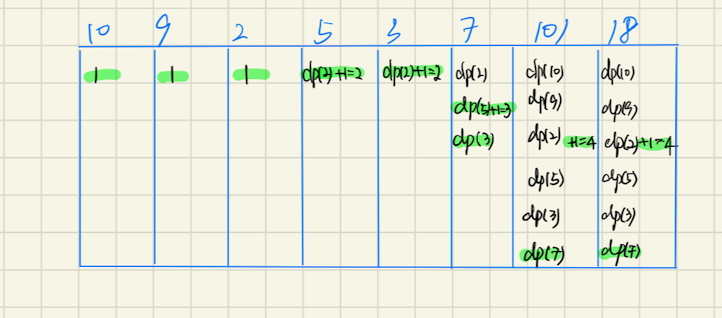 10 9 2 5 3 7 101 18
1 1 1 dp(2)+1=2 dp(2)+1=2 dp(2) dp(10) dp(10)
dp(5)+1=3 dp(9) dp(9)
dp(3) dp(2) +1=4 dp(2)+1=4
dp(5) dp(5)
dp(3) dp(3)
dp(7) dp(7)